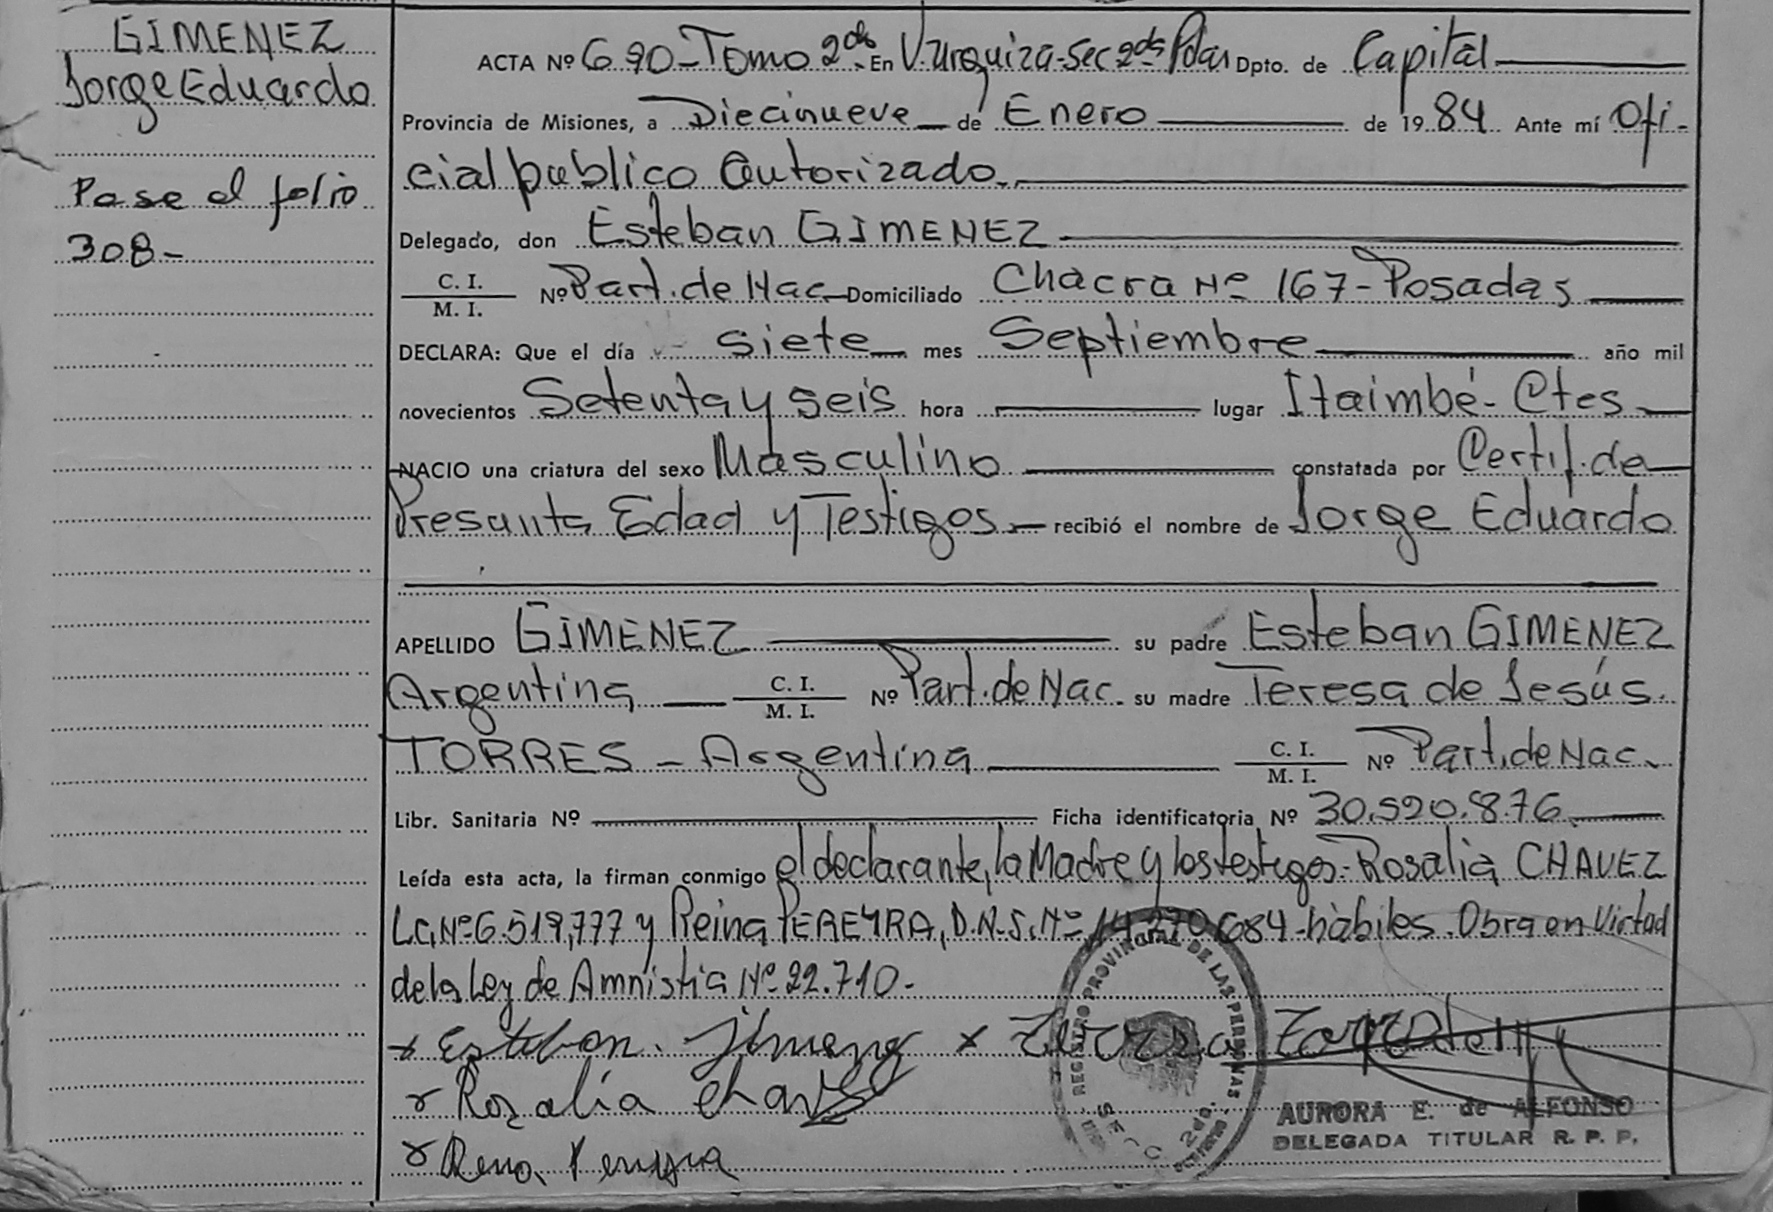 GIMENEZ
Jorge Eduardo
Pase al folio
308-
ACTA Nº 690-Tomo 2do. En V. Urquiza-Sec 2da Pdas Dpto. de Capital
Provincia de Misiones, a Diecinueve de Enero de 1984 Ante mí Ofi-
cial publico Autorizado.
Delegado, don Esteban GIMENEZ
C. I.
M. I.
Nº Part. de Nac. Domiciliado Chacra Nº 167-Posadas
DECLARA: Que el día siete mes Septiembre año mil
novecientos Setenta y seis hora lugar Itaimbé-Ctes
NACIO una criatura del sexo Masculino constatada por Certif. de
Presunta Edad y Testigos recibió el nombre de Jorge Eduardo
APELLIDO GIMENEZ su padre Esteban GIMENEZ
Argentina C. I. M. I. Nº Part. de Nac. su madre Teresa de Jesús.
TORRES - Argentina C. I. M. I. Nº Part. de Nac.
Libr. Sanitaria Nº Ficha identificatoria Nº 30.590.876
Leída esta acta, la firman conmigo el declarante, la Madre y los testigos.- Rosalia CHAVEZ
L.C. Nº 6.519.777 y Reina PEREYRA, D.N.I. Nº 14.270.684-hábiles. Obra en Virtud
de la Ley de Amnistia Nº 22.710.-
x Esteban. Jimenez x Torres
x Rosalia Chavez
x Pereyra
REGISTRO PROVINCIAL DE LAS PERSONAS
SECC 2da.
AURORA E. de ALFONSO
DELEGADA TITULAR R. P. P.